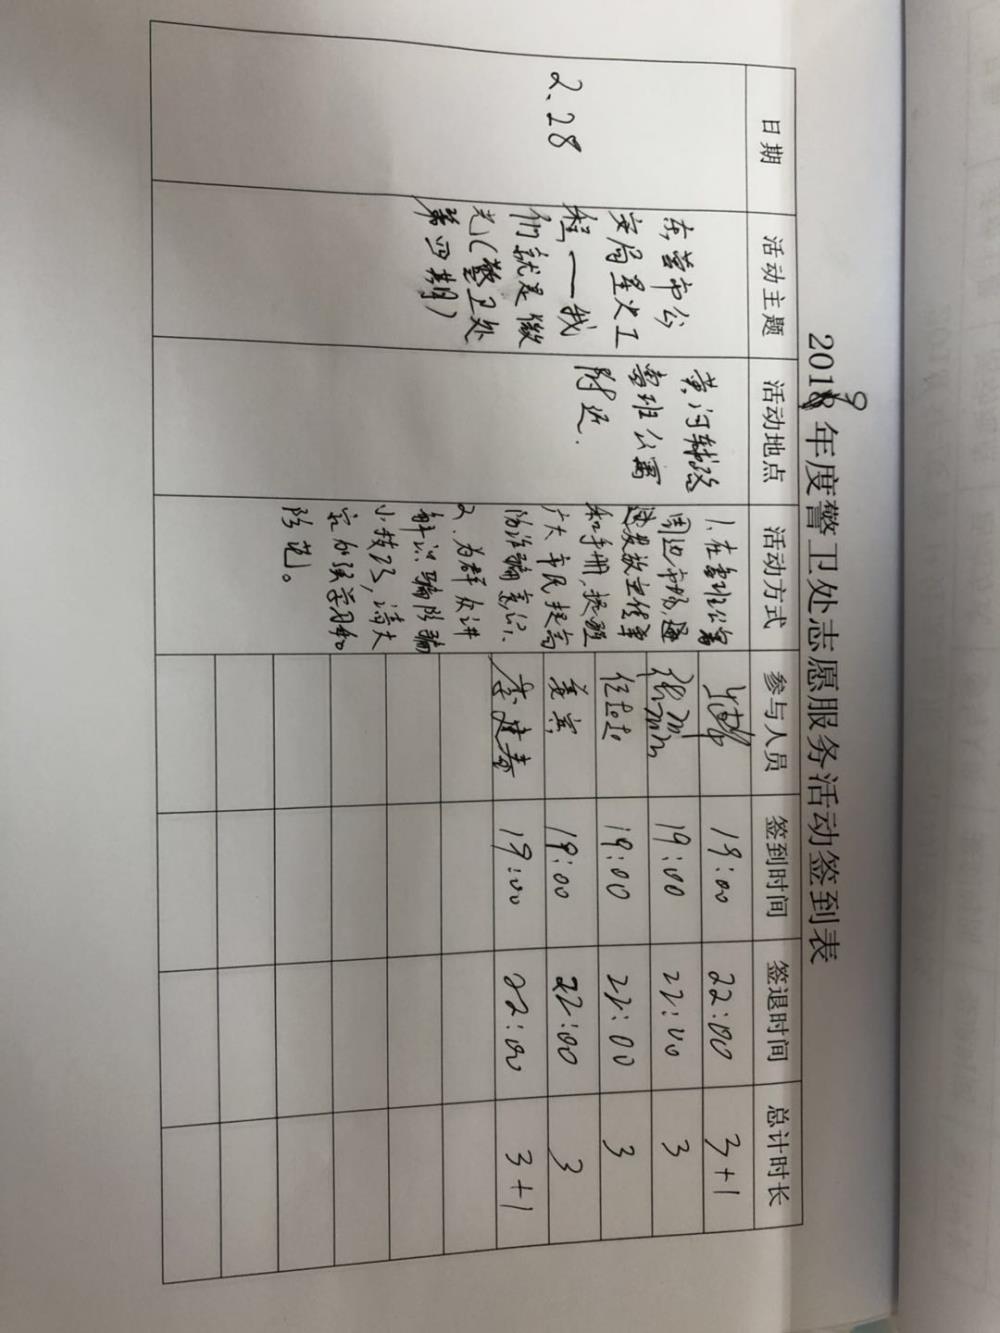 2019年度警卫处志愿服务活动签到表
日期 活动主题 活动地点 活动方式 参与人员 签到时间 签退时间 总计时长
2.28
东营市公
安局星火工
程一我
们就是微
光(警卫处
第四期)
黄河路
鲁班公寓
附近.
1.在鲁班公寓
周边市场,
发放宣传单
和手册,提醒
广大市民提高
防诈骗意识.
2.为群众讲
解识骗防骗
小技巧,请大
家加强学习和
防范。
19:00 22:00 3+1
19:00 22:00 3
19:00 22:00 3
19:00 22:00 3
李建春 19:00 22:00 3+1